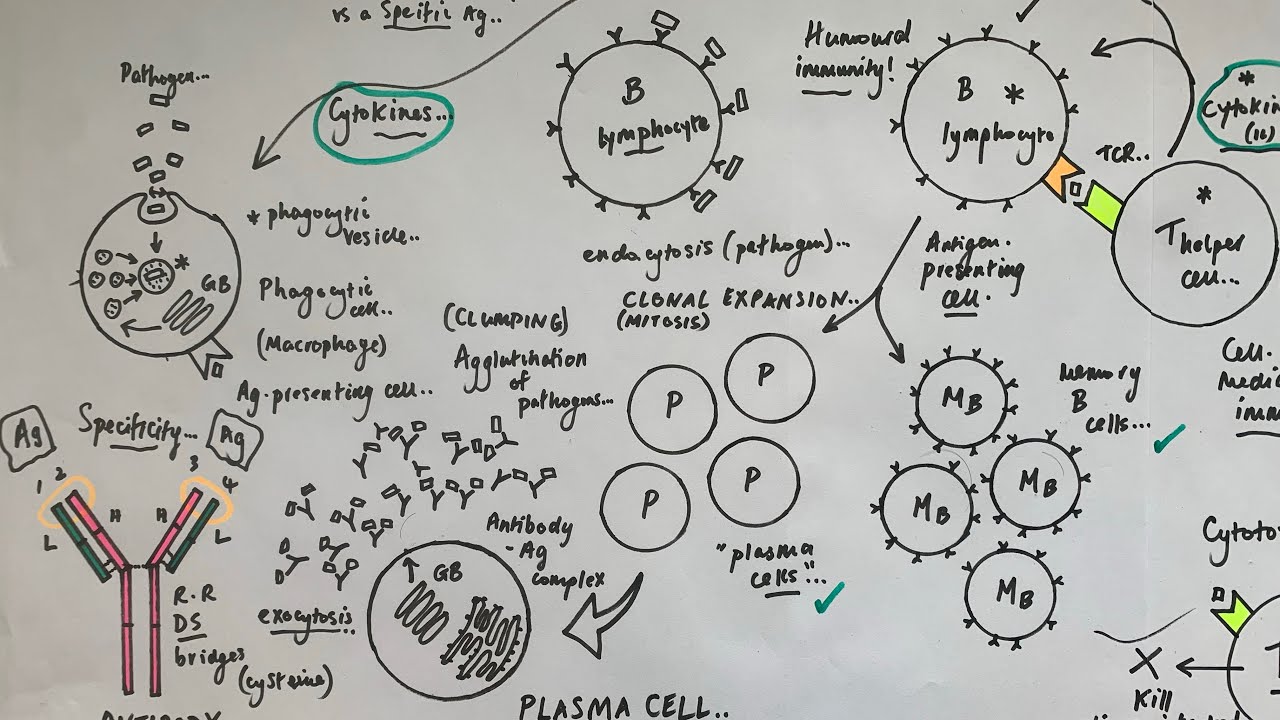 vs a Specific Ag..
Pathogen...
Cytokines...
B
lymphocyte
Humoural
immunity!
B *
lymphocyte
TCR..
*
Cytokin
(IL)
*
T helper
cell...
* phagocytic
vesicle...
*
GB
Phagocytic
cell..
(Macrophage)
Ag-presenting cell..
endocytosis (pathogen)...
CLONAL EXPANSION..
(MITOSIS)
Antigen.
presenting
cell.
(CLUMPING)
Agglutination
of
pathogens...
P
P
P
P
"plasma
cells"...
MB
MB
MB
MB
memory
B
cells...
Cell.
Medi
immu
Specificity...
Ag
Ag
1
2
3
4
H
H
L
L
R.R
DS
bridges
(cysteine)
ANTIBODY
Antibody
- Ag
complex
exocytosis..
GB
PLASMA CELL..
Cytoto
T
X
Kill